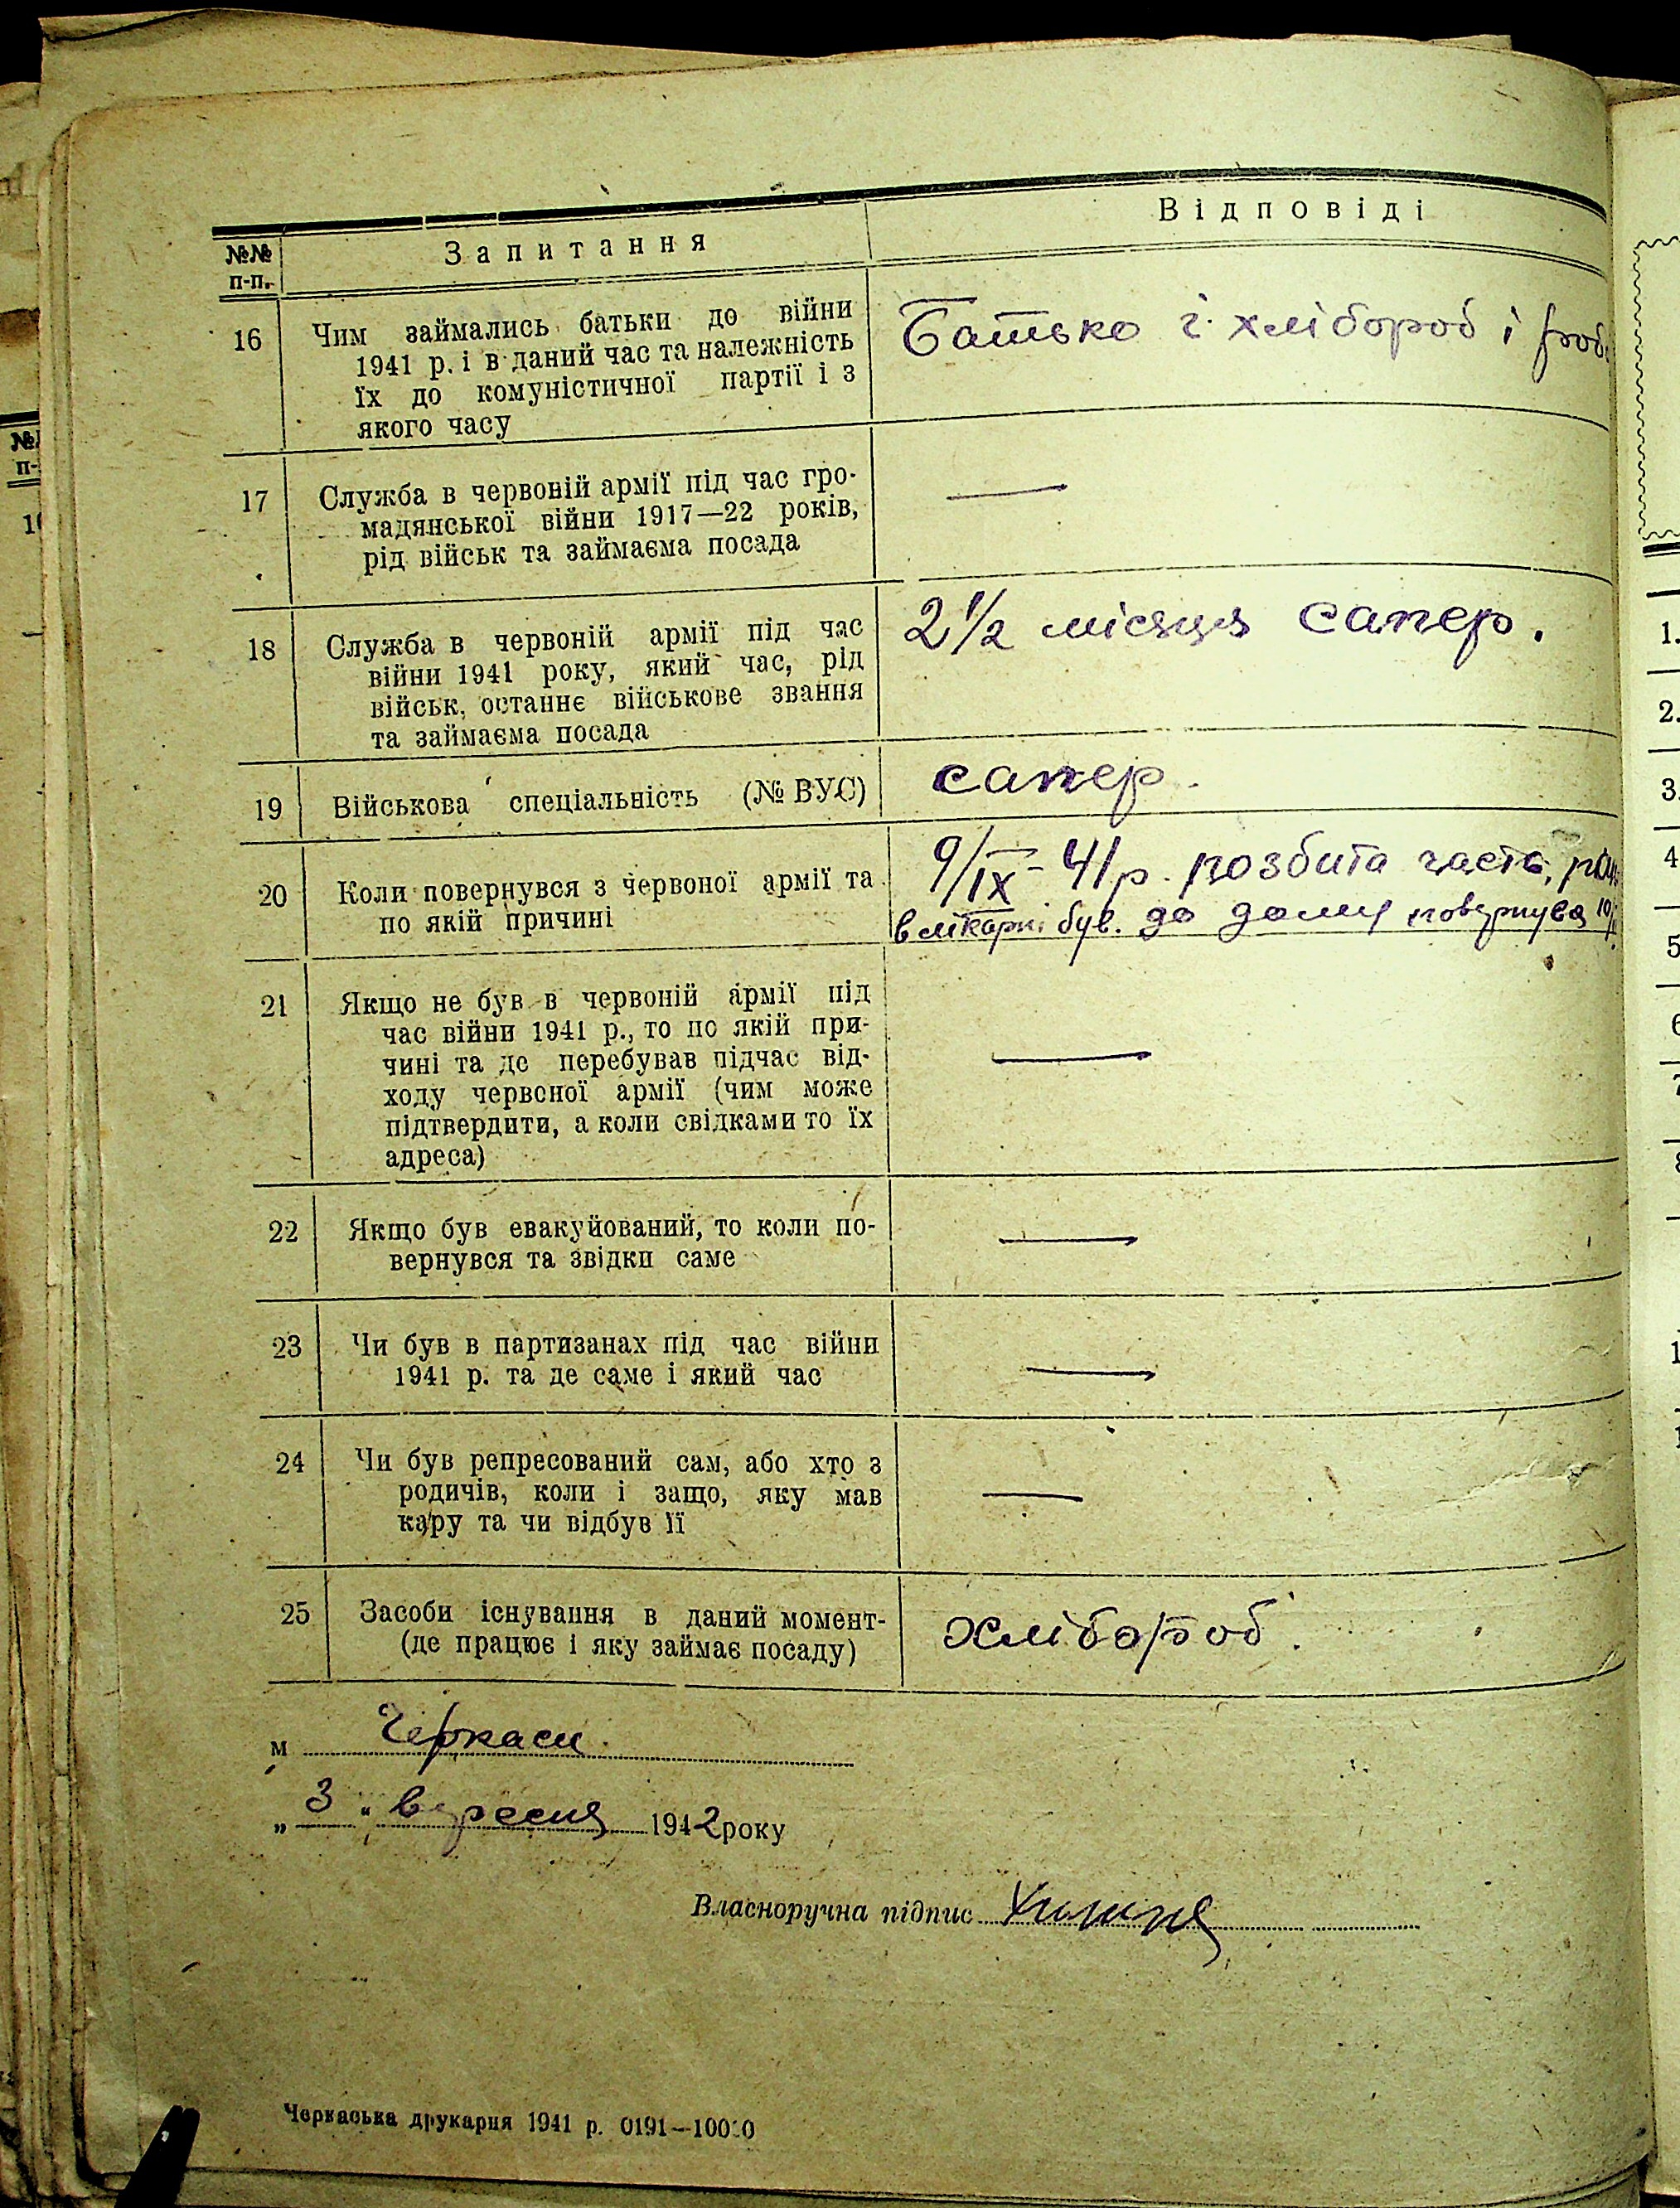 №№ п-п. Запитання Відповіді
16 Чим займались батьки до війни
1941 р. і в даний час та належність
їх до комуністичної партії і з
якого часу
Батько і хлібороб і
17 Служба в червоній армії під час гро-
мадянської війни 1917—22 років,
рід військ та займаєма посада
—
18 Служба в червоній армії під час
війни 1941 року, який час, рід
військ, останнє військове звання
та займаєма посада
2 1/2 місяця сапер.
19 Військова спеціальність (№ ВУС)
сапер.
20 Коли повернувся з червоної армії та
по якій причині
9/IX - 41 р. розбита часть,
в лікарні був. до дому повернувся
21 Якщо не був в червоній армії під
час війни 1941 р., то по якій при-
чині та де перебував підчас від-
ходу червоної армії (чим може
підтвердити, а коли свідками то їх
адреса)
—
22 Якщо був евакуйований, то коли по-
вернувся та звідки саме
—
23 Чи був в партизанах під час війни
1941 р. та де саме і який час
—
24 Чи був репресований сам, або хто з
родичів, коли і защо, яку мав
кару та чи відбув її
—
25 Засоби існування в даний момент-
(де працює і яку займає посаду)
хлібороб.
м Черкаси.
„ 3 " вересня 1942 року
Власноручна підпис
Черкаська друкарня 1941 р. 0191—10000
№
п-
1.
2.
3.
4
5
6
7